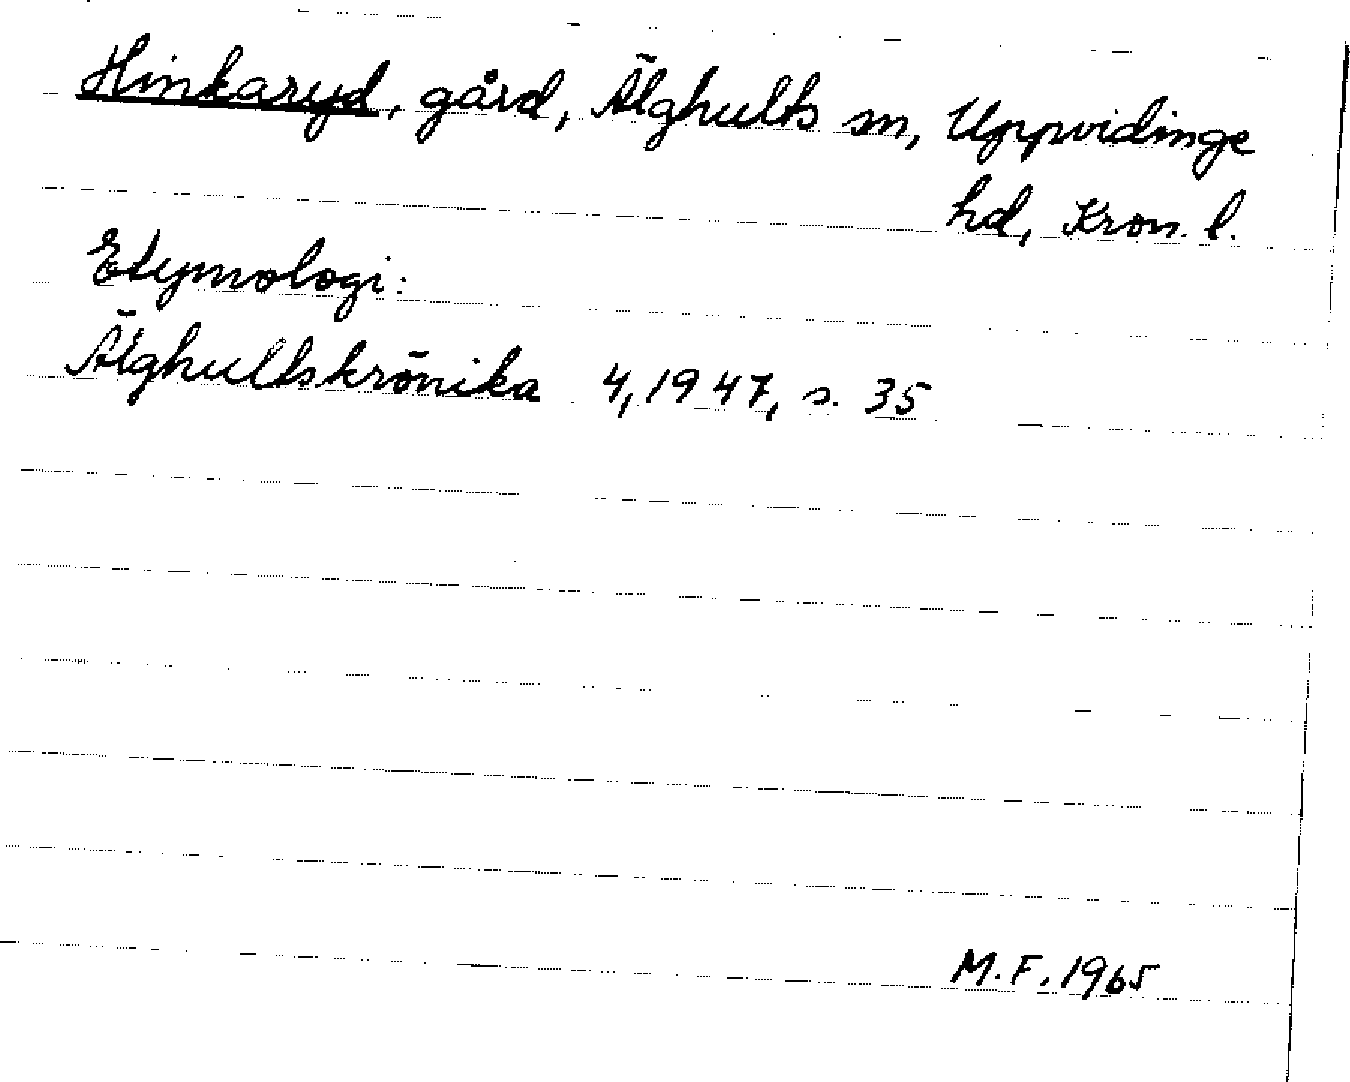 Hinkaryd, gård, Älghults sn, Uppvidinge
hd, Kron. l.
Etymologi:
Älghultskrönika 4, 1947, s. 35
M.F. 1965